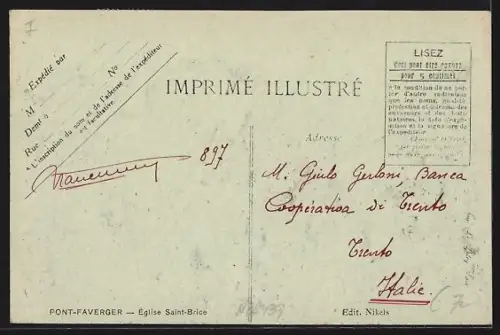 7
Expédié par
M
No
Demt à
Rue
"L'inscription du nom et de l'adresse de l'expéditeur
est facultative.
IMPRIMÉ ILLUSTRÉ
LISEZ
Ceci peut être envoyé
pour 5 centimes
à la condition de ne porter d'autre
que les noms, qualité
profession et adresse des
envoyeurs et des destinataires,
la date d'expédition
et la signature de
l'expéditeur
Adresse
897
M. Giulo Gerloni, Banca
Cooperativa di Trento
Trento
Italie.
PONT-FAVERGER — Église Saint-Brice
Edit. Nikels